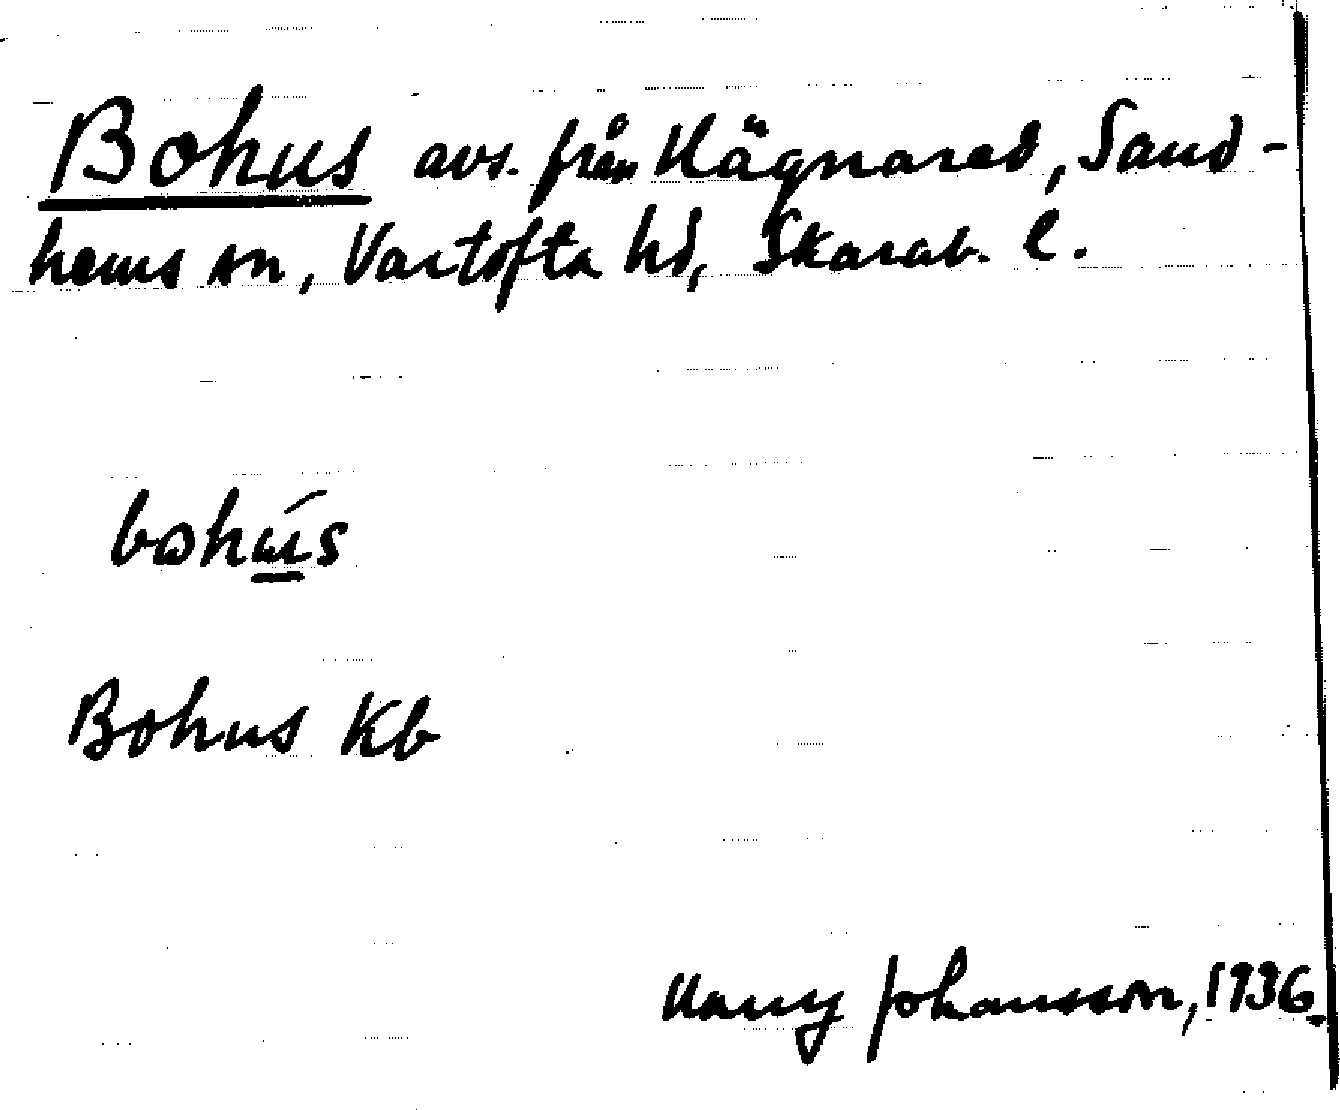 Bohus avs. från Hägnared, Sand-
hems sn, Vartofta hd, Skarab. l.
bohú̲s
Bohus Kb
Harry Johansson, 1936.